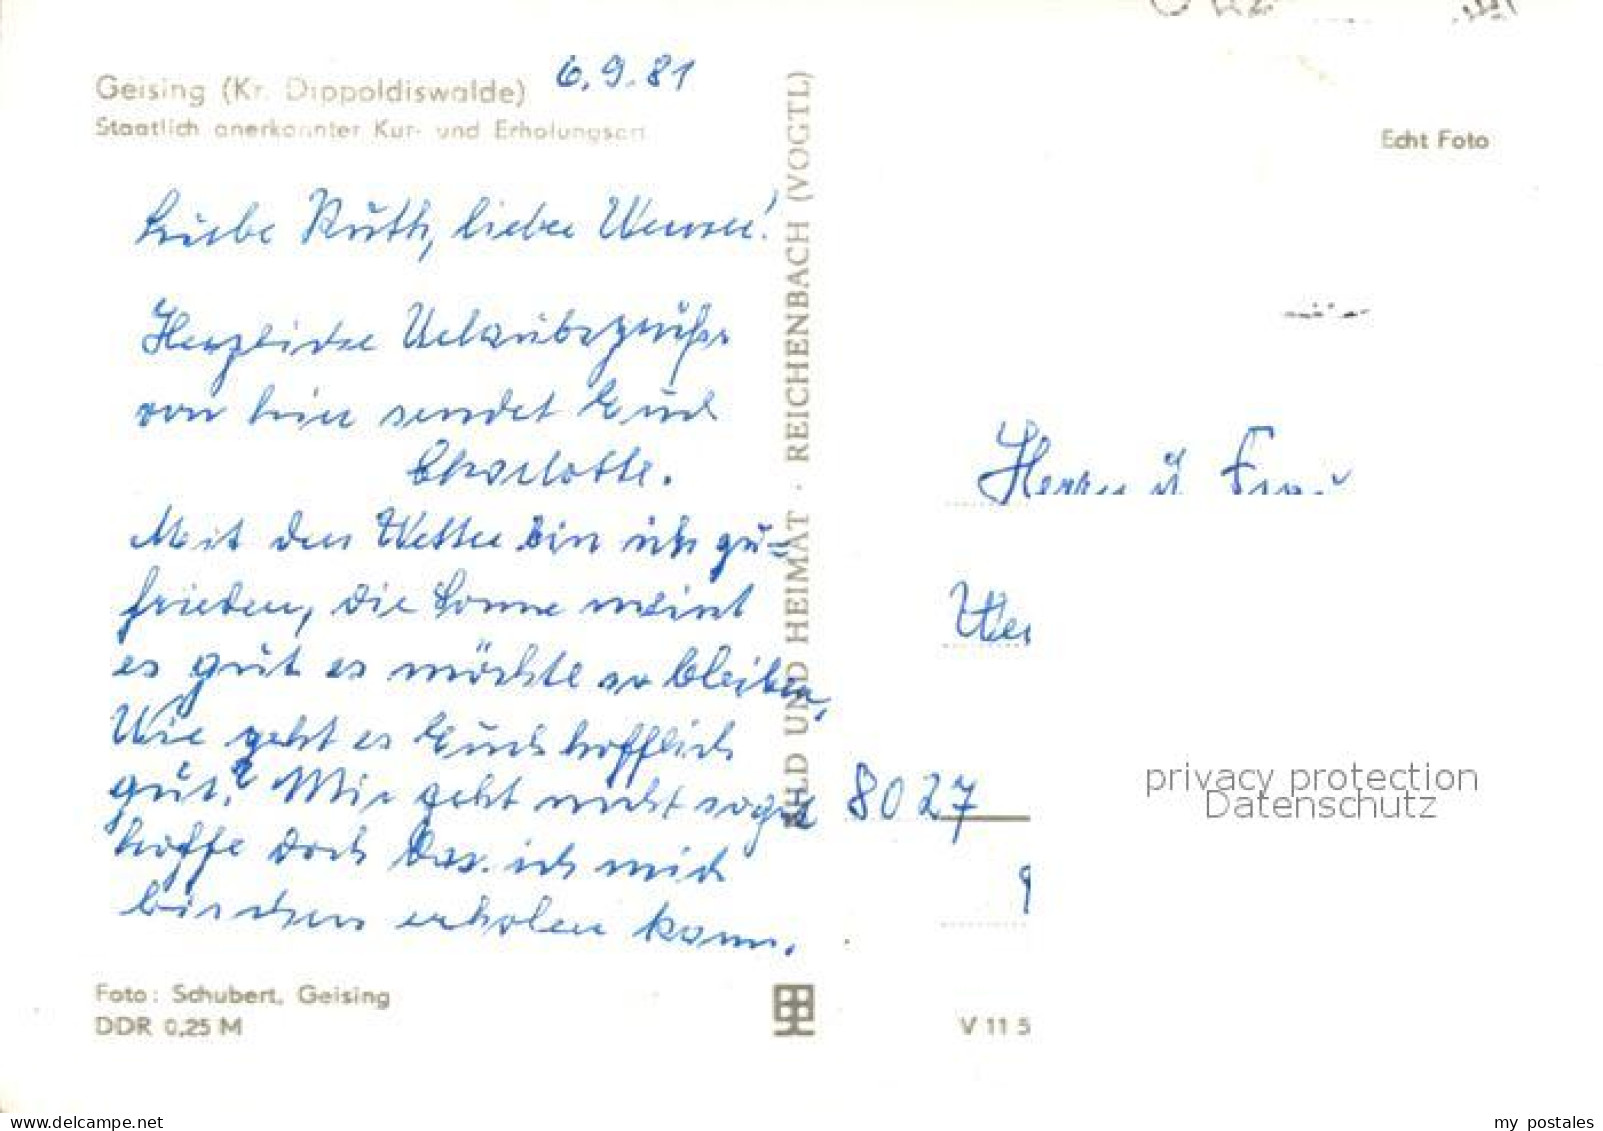 Geising (Kr. Dippoldiswalde)
6.9.81
Staatlich anerkannter Kur- und Erholungsort
Echt Foto
Liebe Ruth, lieber Werner!
Herzliche Urlaubsgrüße
von hier sendet Euch
Charlotte.
Mit den Wetter bin ich zu=
frieden, die Sonne meint
es gut es möchte so bleiben,
Wie geht es Euch hoffflich
gut? Mir geht nicht so gut
hoffe doch das ich mich
bischen erholen kann.
BILD UND HEIMAT · REICHENBACH (VOGTL)
Herrn u Frau
Wer
8027
privacy protection
Datenschutz
Foto: Schubert, Geising
DDR 0,25 M
V 11 5
www.delcampe.net
my_postales